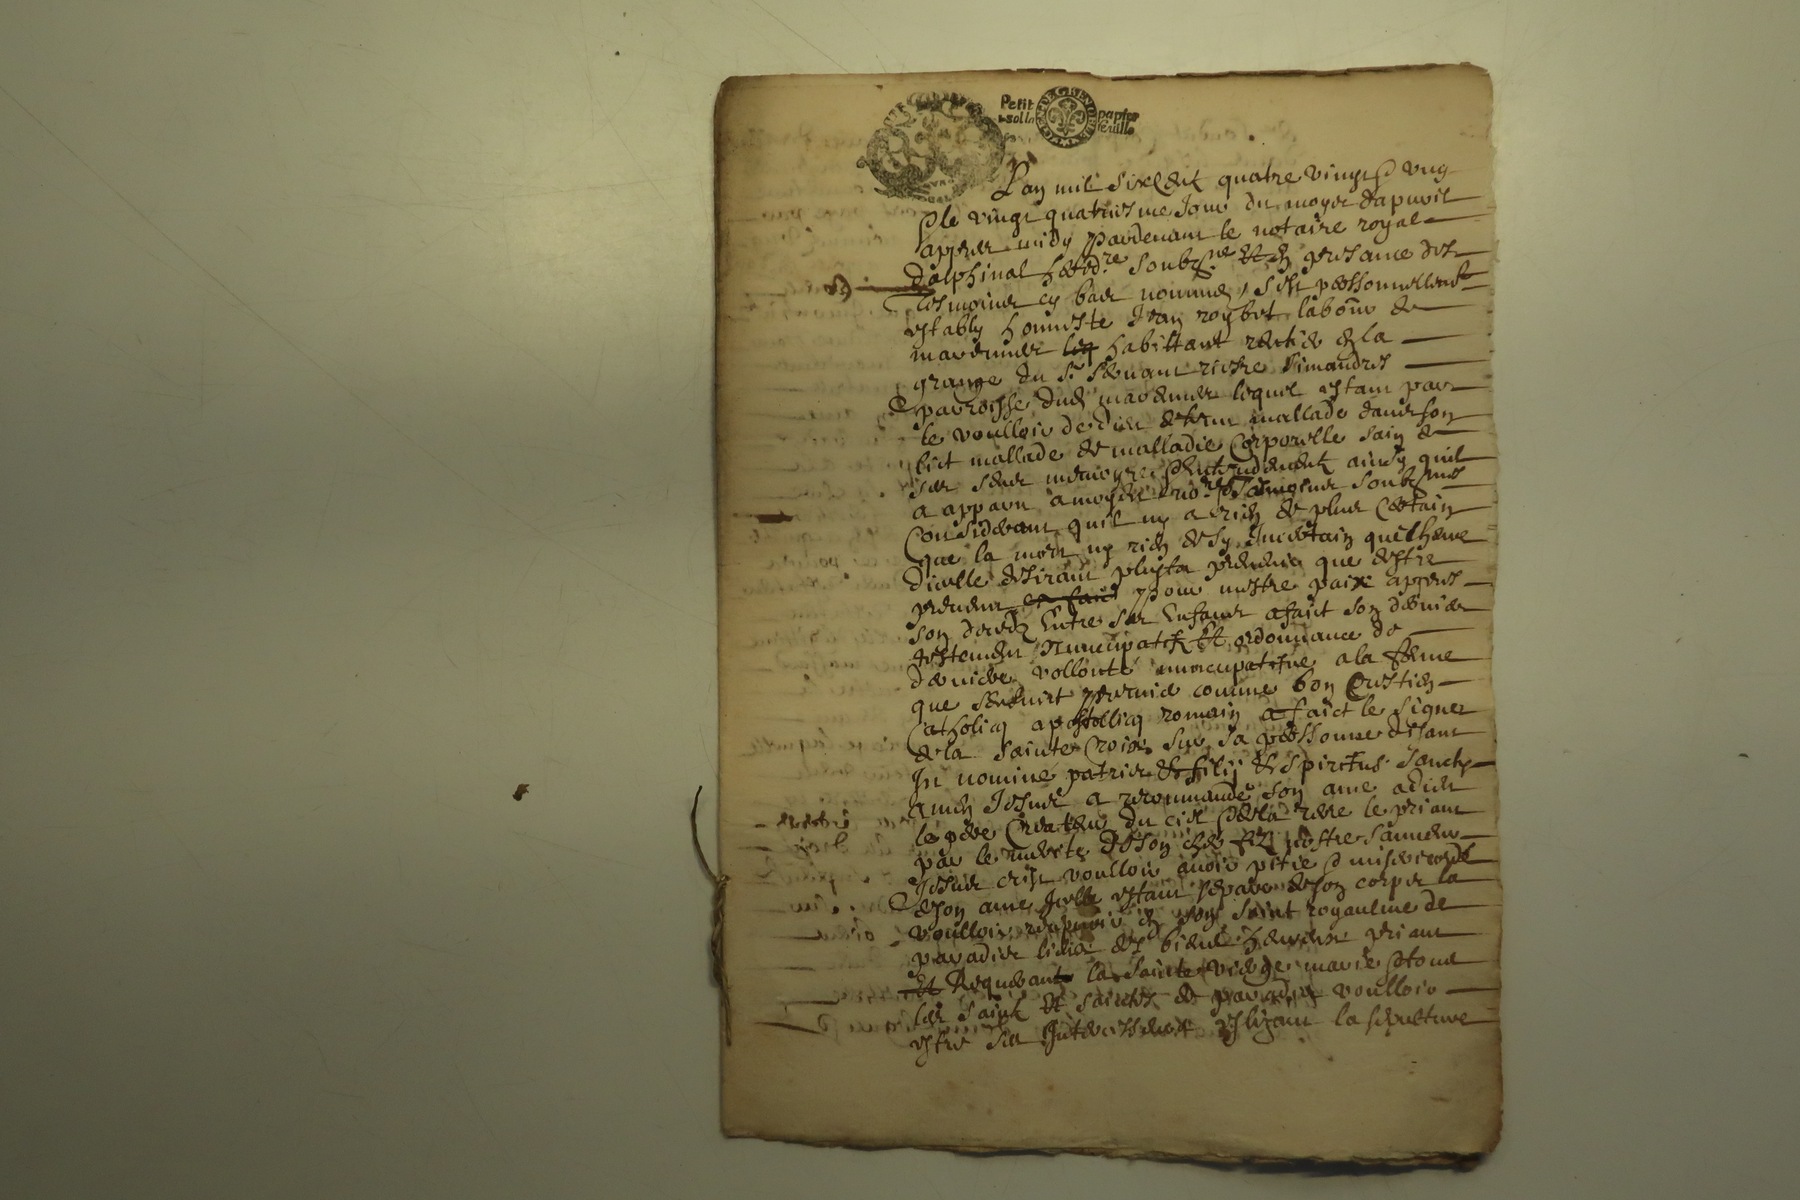 Petit papier
sol la feuille
GEN DE GRENOBLE
Lan mil six cent quatre vingts & ung
& le vingt quatriesme Jour du moys dapvril
appres midy pardevant le notaire royal
dalphinal hered.re soubz.ne et en presance des
tesmoins cy bas nommes, sest personnellemt
estably honneste Jean roybet labour de
habittant rentier en la
grange du Sr
parroisse dud lequel estant par
le voulloir de dieu detenu mallade dans son
lict mallade de malladie Corporelle sain de
ses sens memoyre & entendement ainsy quil
a apparu a moydit no.re & tesmoins soubznes
Considerant quil ny a rien de plus Certain
que la mort ny rien de sy Incertain que lheure
dicelle desirant plustot prevenir que destre
prevenu pour mettre paix appres
son deces Entre ses Enfans a faict son dernier
testement Nuncupatif et ordonnance de
derniere vollonte nuncupatifve a la forme
que sensuit premier comme bon Crestien
Catholicq apostollicq romain a faict le signe
de la sainte Croix sur sa personne disant
In nomine patris et filij et spiritus sancty
amen Jesus a recommande son ame a dieu
le pere Createur du ciel & de la terre le priant
par le merite de son cher filz nostre sauveur
Jesus crist voulloir avoir pitie & misericorde
de son ame Icelle estant separee de son corps la
voulloir en son saint royaulme de
paradis lieu des bienheureux priant
et Requerant la sainte vierge marie & tous
les saints et saintes de paradis voulloir
estre ses Intercesseurs eslizant la sepulture